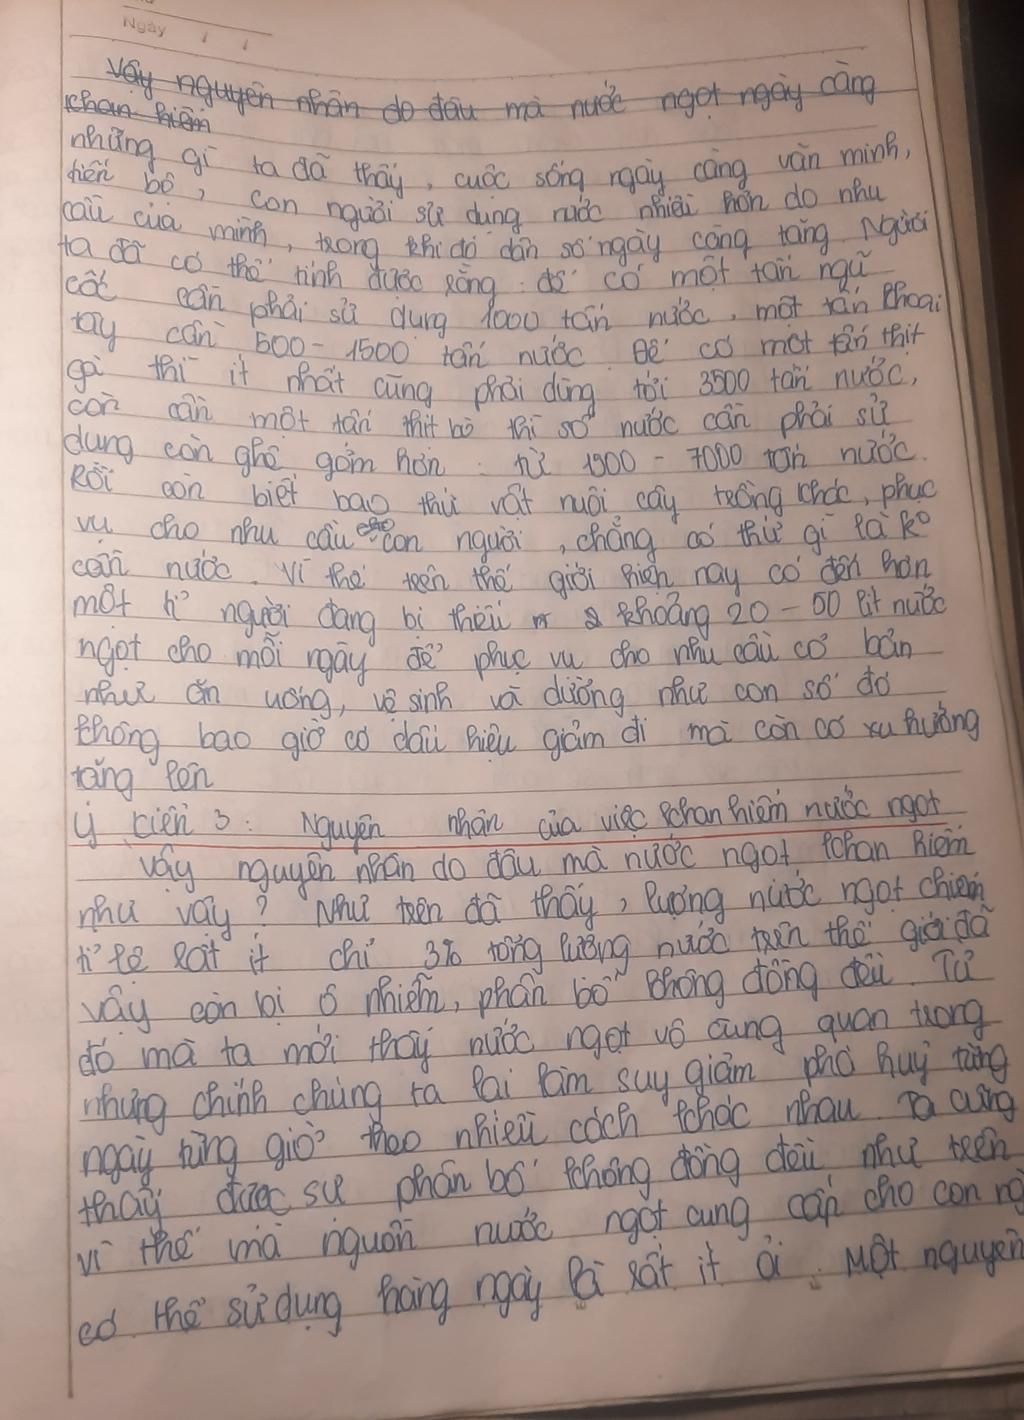 Ngày / /
Vậy nguyên nhân do đâu mà nước ngọt ngày càng
khan hiếm
những gì ta đã thấy, cuộc sống ngày càng văn minh,
tiến bộ, con người sử dụng nước nhiều hơn do nhu
cầu của mình, trong khi đó dân số ngày càng tăng. Người
ta đã có thể tính được rằng: để có một tấn ngũ
cốc cần phải sử dụng 1000 tấn nước, một tấn khoai
tây cần 500 - 1500 tấn nước. Để có một tấn thịt
gà thì ít nhất cũng phải dùng tới 3500 tấn nước,
còn cần một tấn thịt bò thì số nước cần phải sử
dụng còn ghê gớm hơn: từ 1900 - 7000 tấn nước.
Rồi còn biết bao thứ vật nuôi cây trồng khác, phục
vụ cho nhu cầu con người, chẳng có thứ gì là ko
cần nước. Vì thế trên thế giới hiện nay có đến hơn
một tỉ người đang bị thiếu khoảng 20 - 50 lít nước
ngọt cho mỗi ngày để phục vụ cho nhu cầu cơ bản
như ăn uống, vệ sinh và dường như con số đó
không bao giờ có dấu hiệu giảm đi mà còn có xu hướng
tăng lên
Ý kiến 3: Nguyên nhân của việc khan hiếm nước ngọt
Vậy nguyên nhân do đâu mà nước ngọt khan hiếm
như vậy? Như trên đã thấy, lượng nước ngọt chiếm
tỉ lệ rất ít chỉ 3% tổng lượng nước trên thế giới đã
vậy còn bị ô nhiễm, phân bố không đồng đều. Từ
đó mà ta mới thấy nước ngọt vô cùng quan trọng
nhưng chính chúng ta lại làm suy giảm phá huỷ từng
ngày từng giờ theo nhiều cách khác nhau. Ta cũng
thấy được sự phân bố không đồng đều như trên
vì thế mà nguồn nước ngọt cung cấp cho con ng
có thể sử dụng hàng ngày là rất ít ỏi. Một nguyên